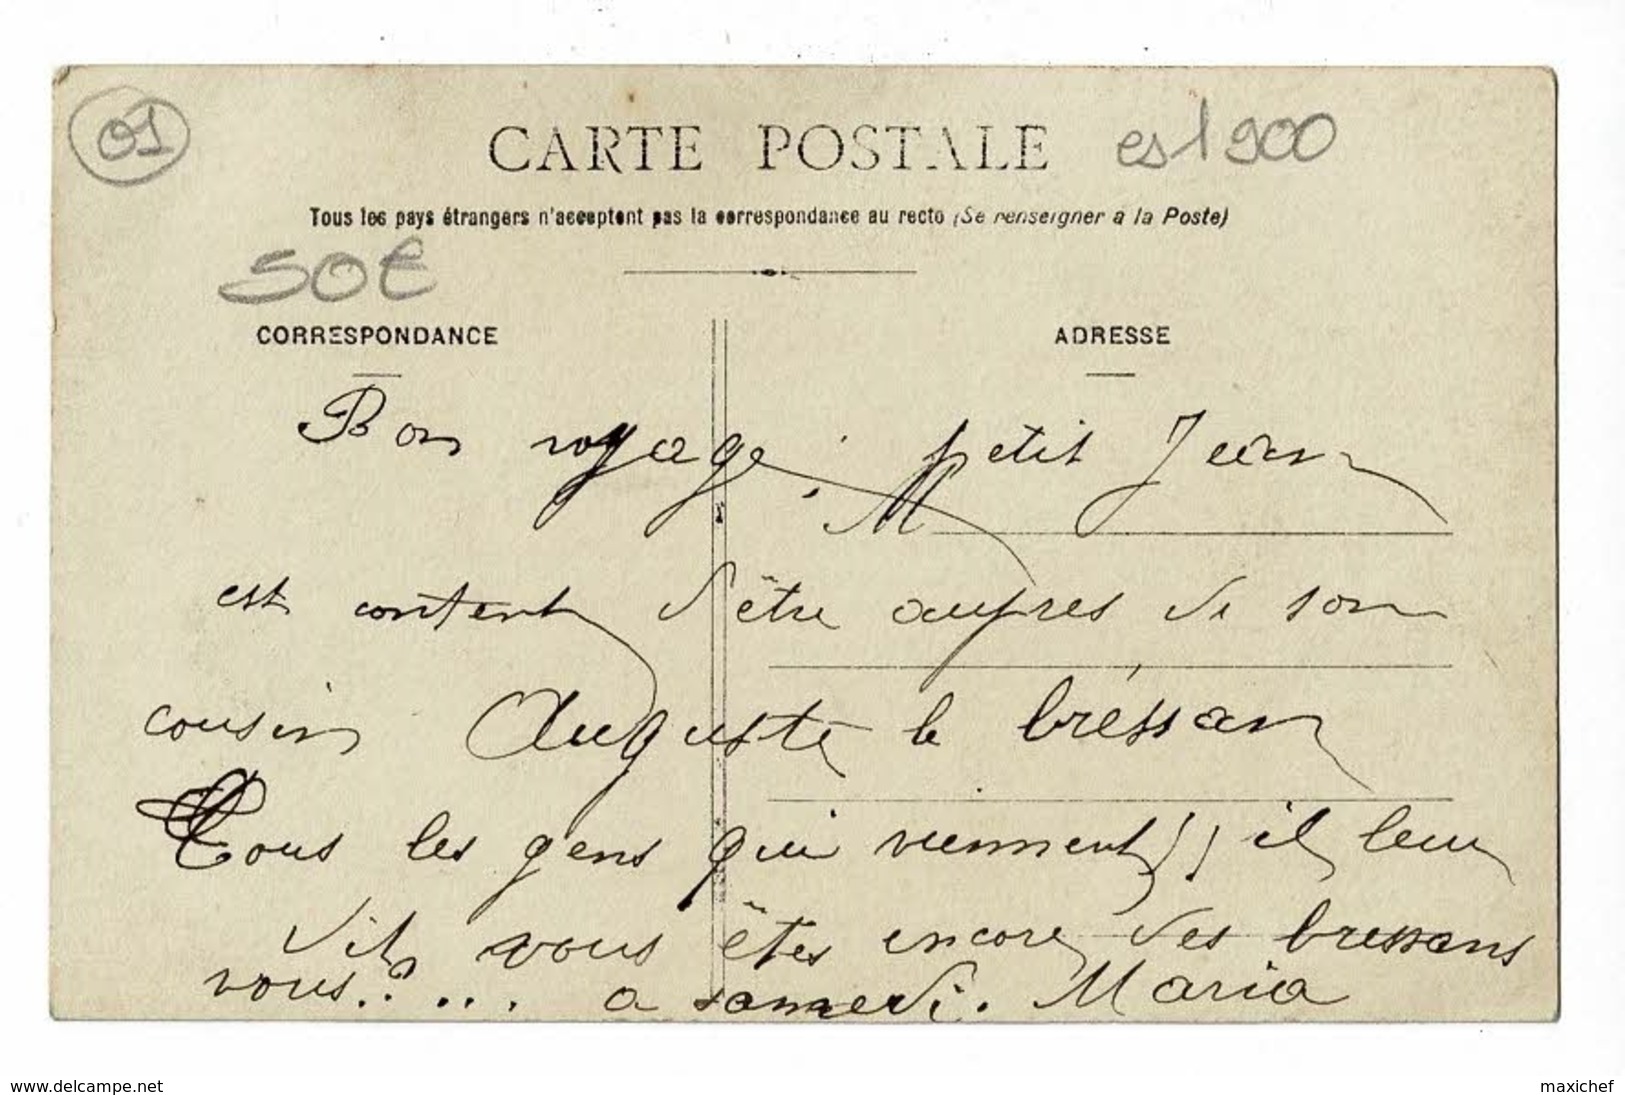 01
CARTE POSTALE
Tous les pays étrangers n'acceptent pas la correspondance au recto (Se renseigner à la Poste)
50€
CORRESPONDANCE
ADRESSE
Bon voyage, petit Jean
M
est content d'être aupres de son
cousin Auguste le bréssan
Tous les gens qui viennent, il leur
dit vous êtes encore des bressans
vous?... a samedi. Maria
www.delcampe.net
maxichef